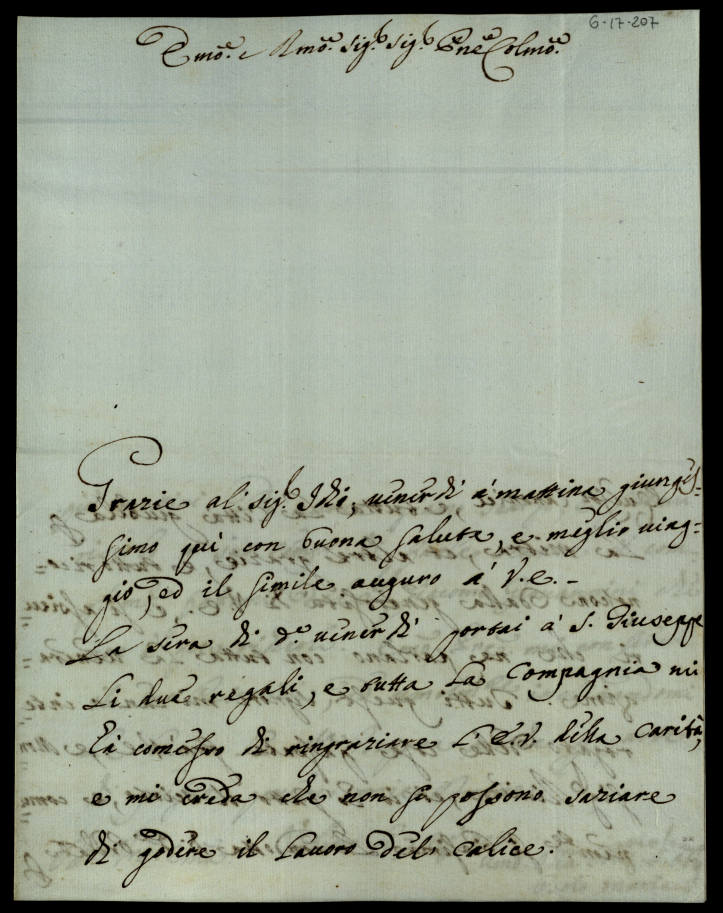 6-17-207
Emo. e Rmo. Sig.r Sig.r Pne Colmo.
Grazie al Sig.r Idio, venerdì a' mattina giunges-
simo quì con buona salute, e meglio viag-
gio, ed il simile auguro à V.E.-
La sera di do. venerdì portai à S. Giuseppe
Li due regali, e tutta La Compagnia mi
hà comesso di ringraziare L'E.V. della carità,
e mi creda che non si possono saziare
di godere il Lavoro del calice.